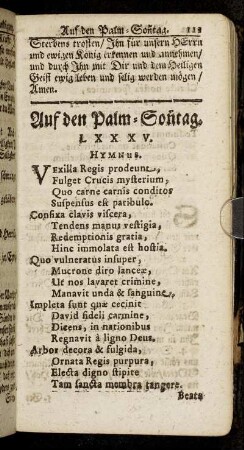 Auf den Palm-Soñtag. 113
Sterbens trösten/ Ihn für unsern HErrn
und ewigen König erkennen und annehmen/
und durch Ihn mit Dir und dem Heiligen
Geist ewig leben und selig werden mögen/
Amen.
Auf den Palm-Soñtag.
LXXXV.
HYMNUS.
VExilla Regis prodeunt,
Fulget Crucis mysterium,
Quo carne carnis conditor
Suspensus est patibulo.
Confixa clavis viscera,
Tendens manus vestigia,
Redemptionis gratia,
Hinc immolata est hostia.
Quo vulneratus insuper,
Mucrone diro lanceæ,
Ut nos lavaret crimine,
Manavit unda & sanguine,
Impleta sunt quæ cecinit
David fideli carmine,
Dicens, in nationibus
Regnavit à ligno Deus.
Arbor decora & fulgida,
Ornata Regis purpura,
Electa digno stipite
Tam sancta membra tangere.
Beata